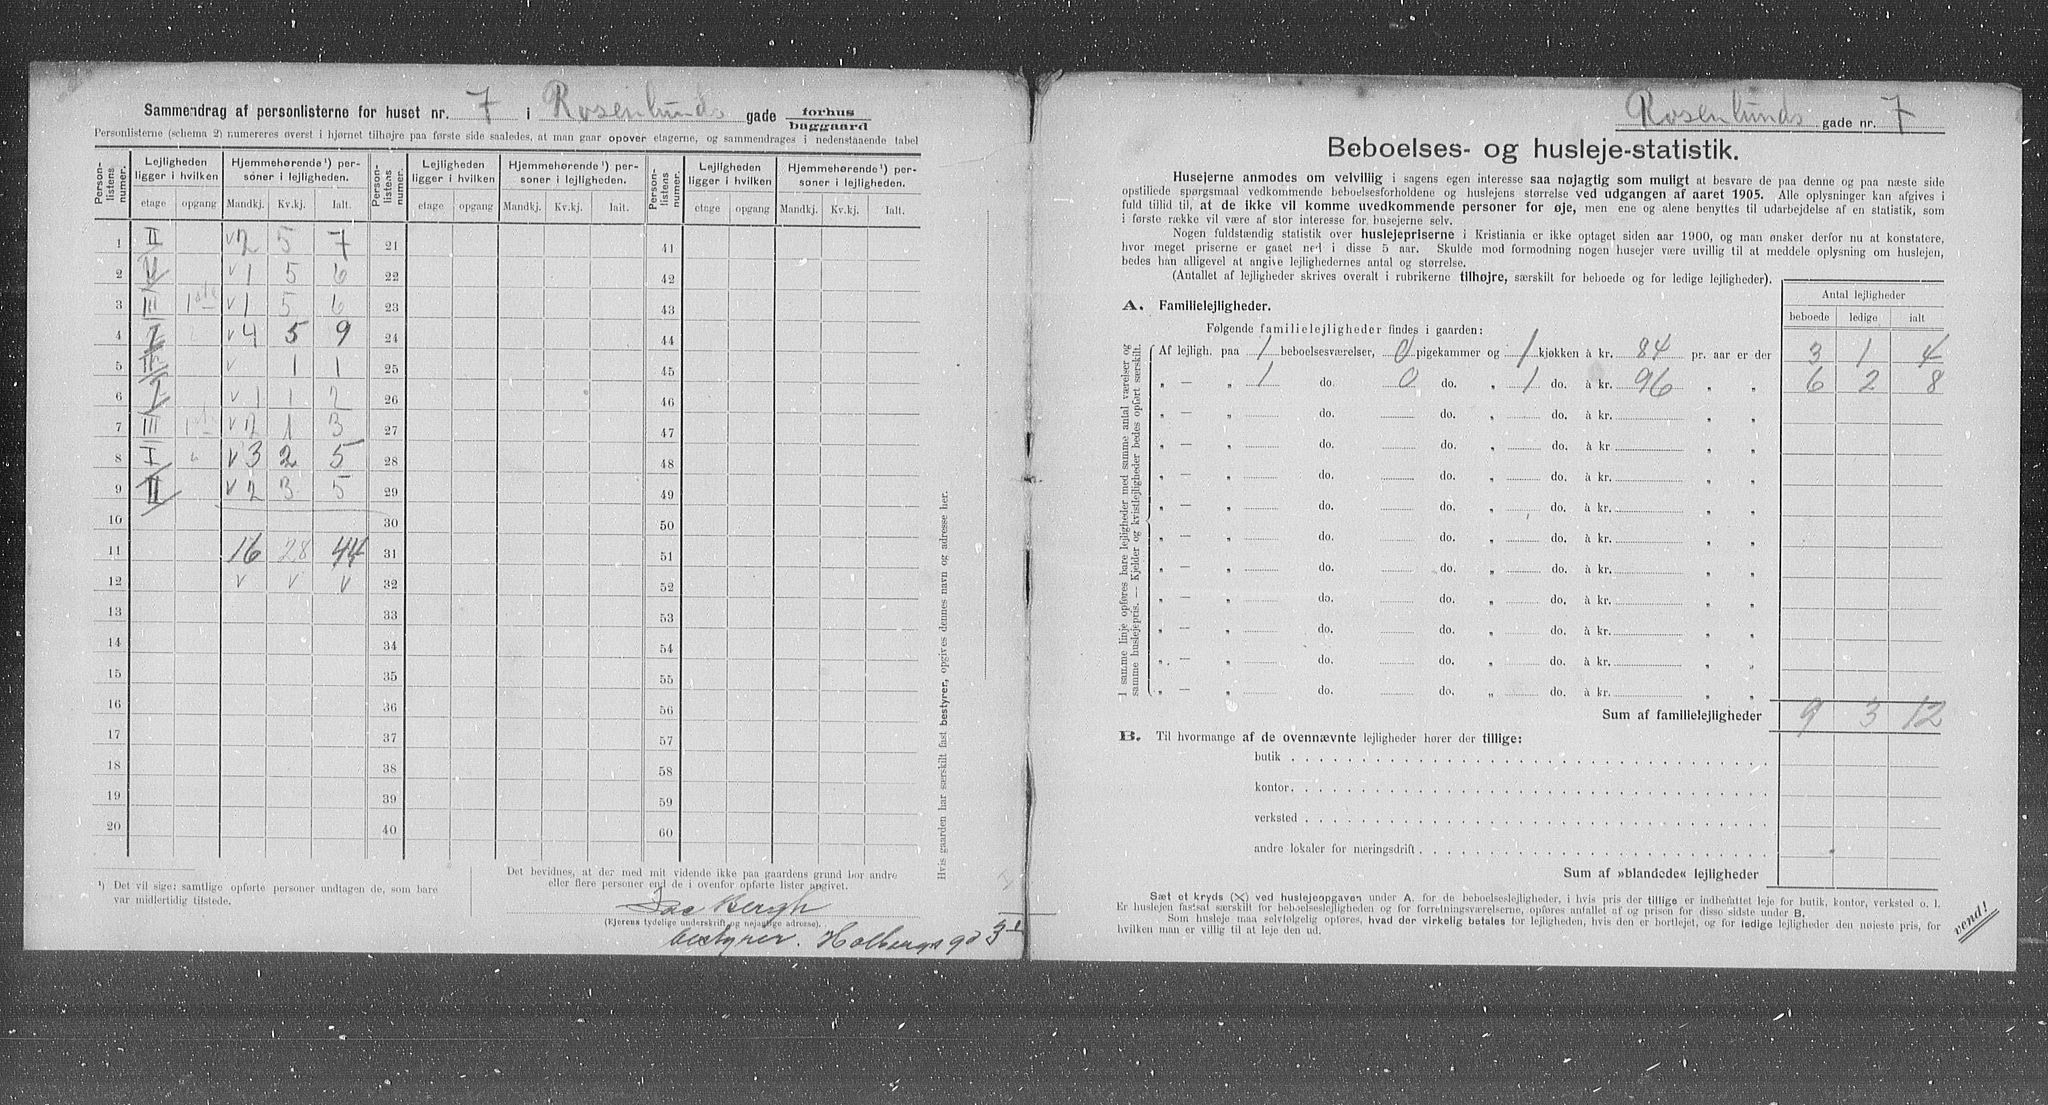 Sammendrag af personlisterne for huset nr. 7 i Rosenlunds gade forhus baggaard
Personlisterne (schema 2) numereres øverst i hjørnet tilhøjre paa første side saaledes, at man gaar opover etagerne, og sammendrages i nedenstaaende tabel
Person-listens numer. Lejligheden ligger i hvilken etage opgang Hjemmehørende¹) personer i lejligheden. Mandkj. Kv.kj. Ialt.
Person-listens numer. Lejligheden ligger i hvilken etage opgang Hjemmehørende¹) personer i lejligheden. Mandkj. Kv.kj. Ialt.
Person-listens numer. Lejligheden ligger i hvilken etage opgang Hjemmehørende¹) personer i lejligheden. Mandkj. Kv.kj. Ialt.
1 II v 2 5 7 21 41
2 v 1 5 6 22 42
3 III 1ste v 1 5 6 23 43
4 I v 4 5 9 24 44
5 v 1 1 25 45
6 I v 1 1 2 26 46
7 III v 2 1 3 27 47
8 I v 3 2 5 28 48
9 II v 2 3 5 29 49
10 30 50
11 16 28 44 31 51
12 v v v 32 52
13 33 53
14 34 54
15 35 55
16 36 56
17 37 57
18 38 58
19 39 59
20 40 60
¹) Det vil sige: samtlige opførte personer undtagen de, som bare
var midlertidig tilstede.
Det bevidnes, at der med mit vidende ikke paa gaardens grund bor andre
eller flere personer end de i ovenfor opførte lister angivet.
Bergh
(Ejerens tydelige underskrift og nøjagtige adresse).
bestyrer. Holbergs gd 3
Hvis gaarden har særskilt fast bestyrer, opgives dennes navn og adresse her.
Rosenlunds gade nr. 7
Beboelses- og husleje-statistik.
Husejerne anmodes om velvillig i sagens egen interesse saa nøjagtig som muligt at besvare de paa denne og paa næste side
opstillede spørgsmaal vedkommende beboelsesforholdene og huslejens størrelse ved udgangen af aaret 1905. Alle oplysninger kan afgives i
fuld tillid til, at de ikke vil komme uvedkommende personer for øje, men ene og alene benyttes til udarbejdelse af en statistik, som
i første række vil være af stor interesse for husejerne selv.
Nogen fuldstændig statistik over huslejepriserne i Kristiania er ikke optaget siden aar 1900, og man ønsker derfor nu at konstatere,
hvor meget priserne er gaaet ned i disse 5 aar. Skulde mod formodning nogen husejer være uvillig til at meddele oplysning om huslejen,
bedes han alligevel at angive lejlighedernes antal og størrelse.
(Antallet af lejligheder skrives overalt i rubrikerne tilhøjre, særskilt for beboede og for ledige lejligheder).
Antal lejligheder
beboede ledige ialt
A. Familielejligheder.
Følgende familielejligheder findes i gaarden:
Af lejligh. paa 1 beboelsesværelser, 0 pigekammer og 1 kjøkken à kr. 84 pr. aar er der 3 1 4
„ — „ 1 do. 0 do. „ 1 do. à kr. 96 „ „ 6 2 8
„ — „ do. do. „ do. à kr. „ „
„ — „ do. do. „ do. à kr. „ „
„ — „ do. do. „ do. à kr. „ „
„ — „ do. do. „ do. à kr. „ „
„ — „ do. do. „ do. à kr. „ „
„ — „ do. do. „ do. à kr. „ „
„ — „ do. do. „ do. à kr. „ „
„ — „ do. do. „ do. à kr. „ „
„ — „ do. do. „ do. à kr. „ „
„ — „ do. do. „ do. à kr. „ „
I samme linje opføres bare lejligheder med samme antal værelser og
samme huslejepris. — Kjelder og kvistlejligheder bedes opført særskilt.
Sum af familielejligheder 9 3 12
B. Til hvormange af de ovennævnte lejligheder hører der tillige:
butik
kontor
verksted
andre lokaler for næringsdrift
Sum af »blandede« lejligheder
Sæt et kryds (X) ved huslejeopgaven under A. for de beboelseslejligheder, i hvis pris der tillige er indbefattet leje for butik, kontor, verksted o. l.
Er huslejen fastsat særskilt for beboelseslejligheden og for forretningsværelserne, opføres antallet af og prisen for disse sidste under B.
Som husleje maa selvfølgelig opføres, hvad der virkelig betales for lejligheden, hvis den er bortlejet, og for ledige lejligheder den nøjeste pris, for
hvilken man er villig til at leje den ud.
vend!